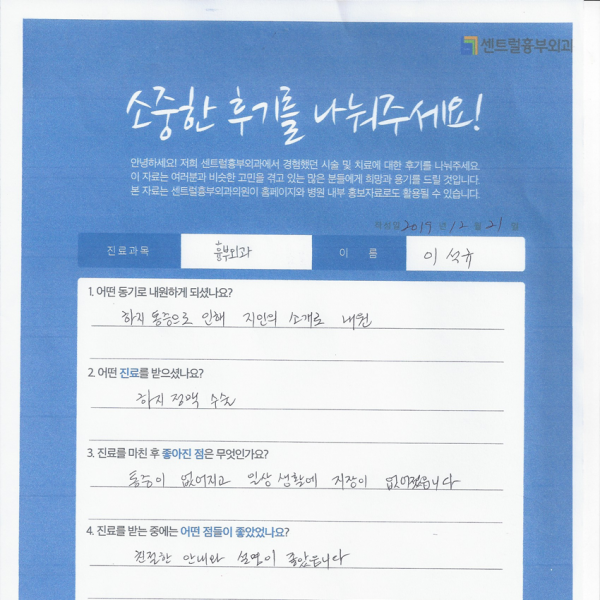 센트럴흉부외과
소중한 후기를 나눠주세요!
안녕하세요! 저희 센트럴흉부외과에서 경험했던 시술 및 치료에 대한 후기를 나눠주세요.
이 자료는 여러분과 비슷한 고민을 겪고 있는 많은 분들에게 희망과 용기를 드릴 것입니다.
본 자료는 센트럴흉부외과의원이 홈페이지와 병원 내부 홍보자료로도 활용될 수 있습니다.
작성일 2019 년 12 월 21 일
진료과목 흉부외과 이 름 이석규
1. 어떤 동기로 내원하게 되셨나요?
하지 통증으로 인해 지인의 소개로 내원
2. 어떤 진료를 받으셨나요?
하지 정맥 수술
3. 진료를 마친 후 좋아진 점은 무엇인가요?
통증이 없어지고 일상생활에 지장이 없어졌습니다
4. 진료를 받는 중에는 어떤 점들이 좋았었나요?
친절한 안내와 설명이 좋았습니다